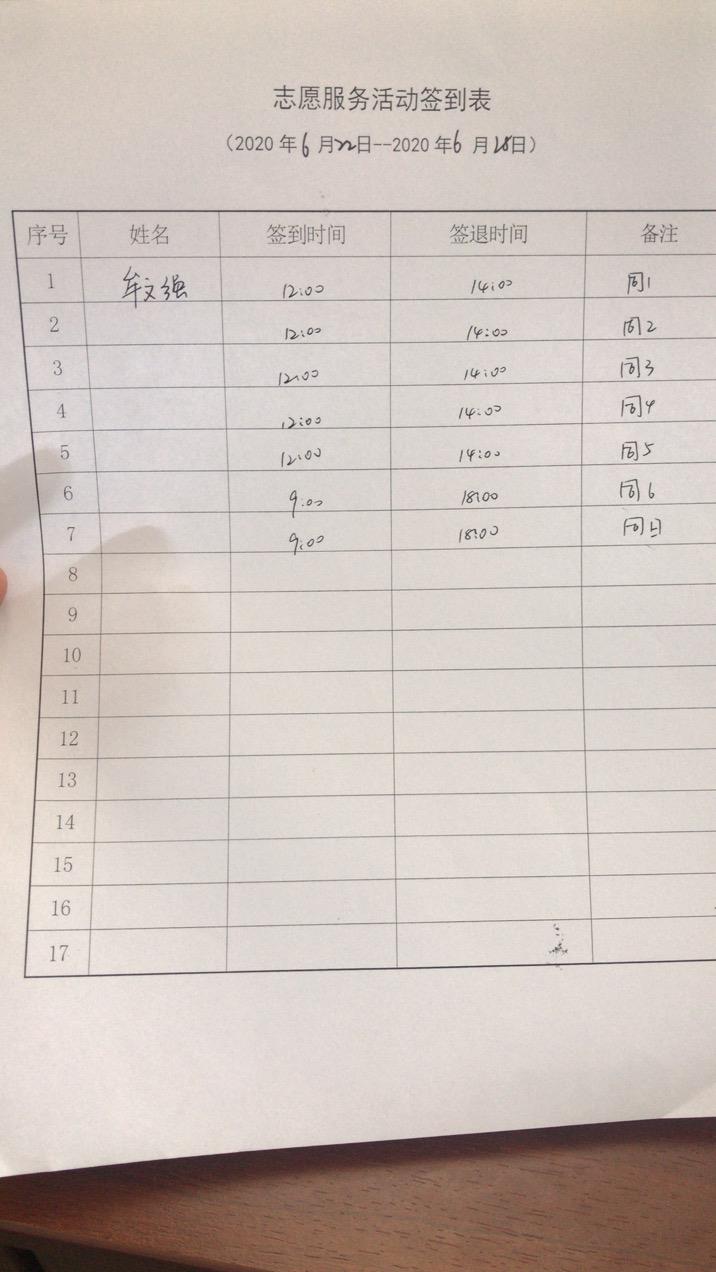 志愿服务活动签到表
（2020 年 6 月 22 日--2020 年 6 月 28 日）
序号 姓名 签到时间 签退时间 备注
1 牟文强 12:00 14:00 周1
2 12:00 14:00 周2
3 12:00 14:00 周3
4 12:00 14:00 周4
5 12:00 14:00 周5
6 9:00 18:00 周6
7 9:00 18:00 周日
8
9
10
11
12
13
14
15
16
17